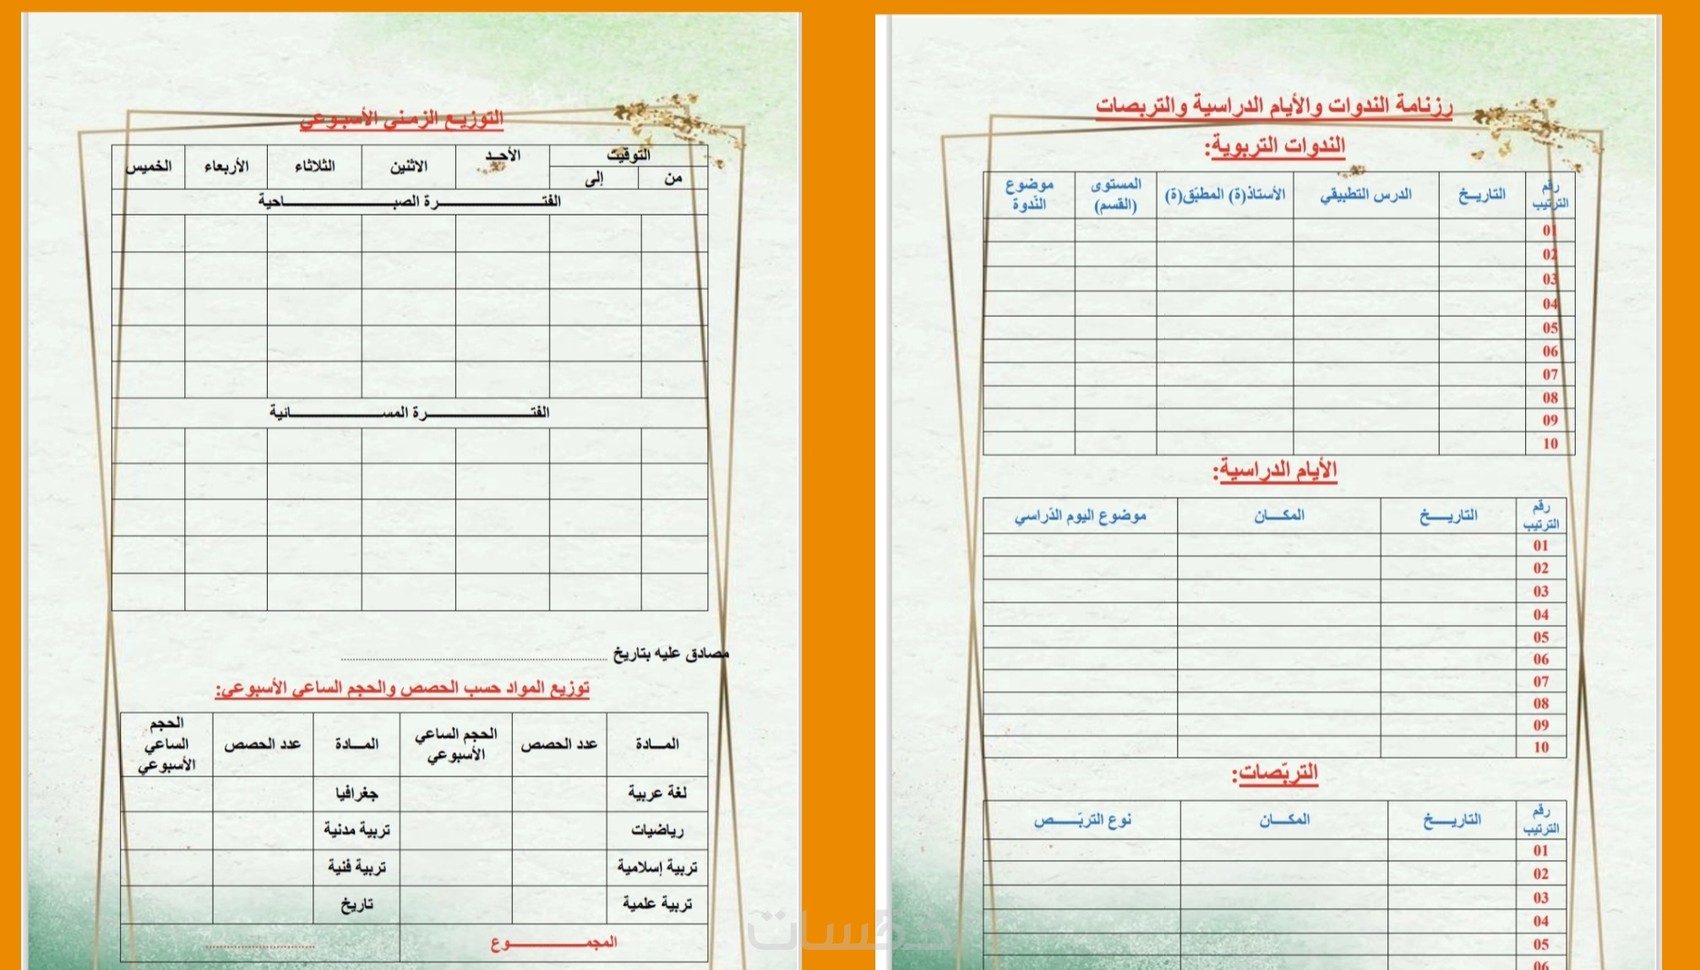 رزنامة الندوات والأيام الدراسية والتربصات
الندوات التربوية:
رقم الترتيب
التاريــخ
الدرس التطبيقي
الأستاذ(ة) المطبّق(ة)
المستوى (القسم)
موضوع النّدوة
01
02
03
04
05
06
07
08
09
10
الأيام الدراسية:
رقم الترتيب
التاريـــخ
المكـــان
موضوع اليوم الدّراسي
01
02
03
04
05
06
07
08
09
10
التربّصات:
رقم الترتيب
التاريـــخ
المكـــان
نوع التربّـــص
01
02
03
04
05
06
التوزيـع الزمـني الأسبـوعي
التوقيت
الأحـد
الاثنين
الثلاثاء
الأربعاء
الخميس
من
إلى
الفتــــــــــرة الصبــــــــــاحية
الفتــــــــــرة المســــــــــائية
مصادق عليه بتاريخ ........................................
توزيع المواد حسب الحصص والحجم الساعي الأسبوعي:
المـــادة
عدد الحصص
الحجم الساعي الأسبوعي
المـــادة
عدد الحصص
الحجم الساعي الأسبوعي
لغة عربية
جغرافيا
رياضيات
تربية مدنية
تربية إسلامية
تربية فنية
تربية علمية
تاريخ
المجمــــــــــوع
..............................
خمسات